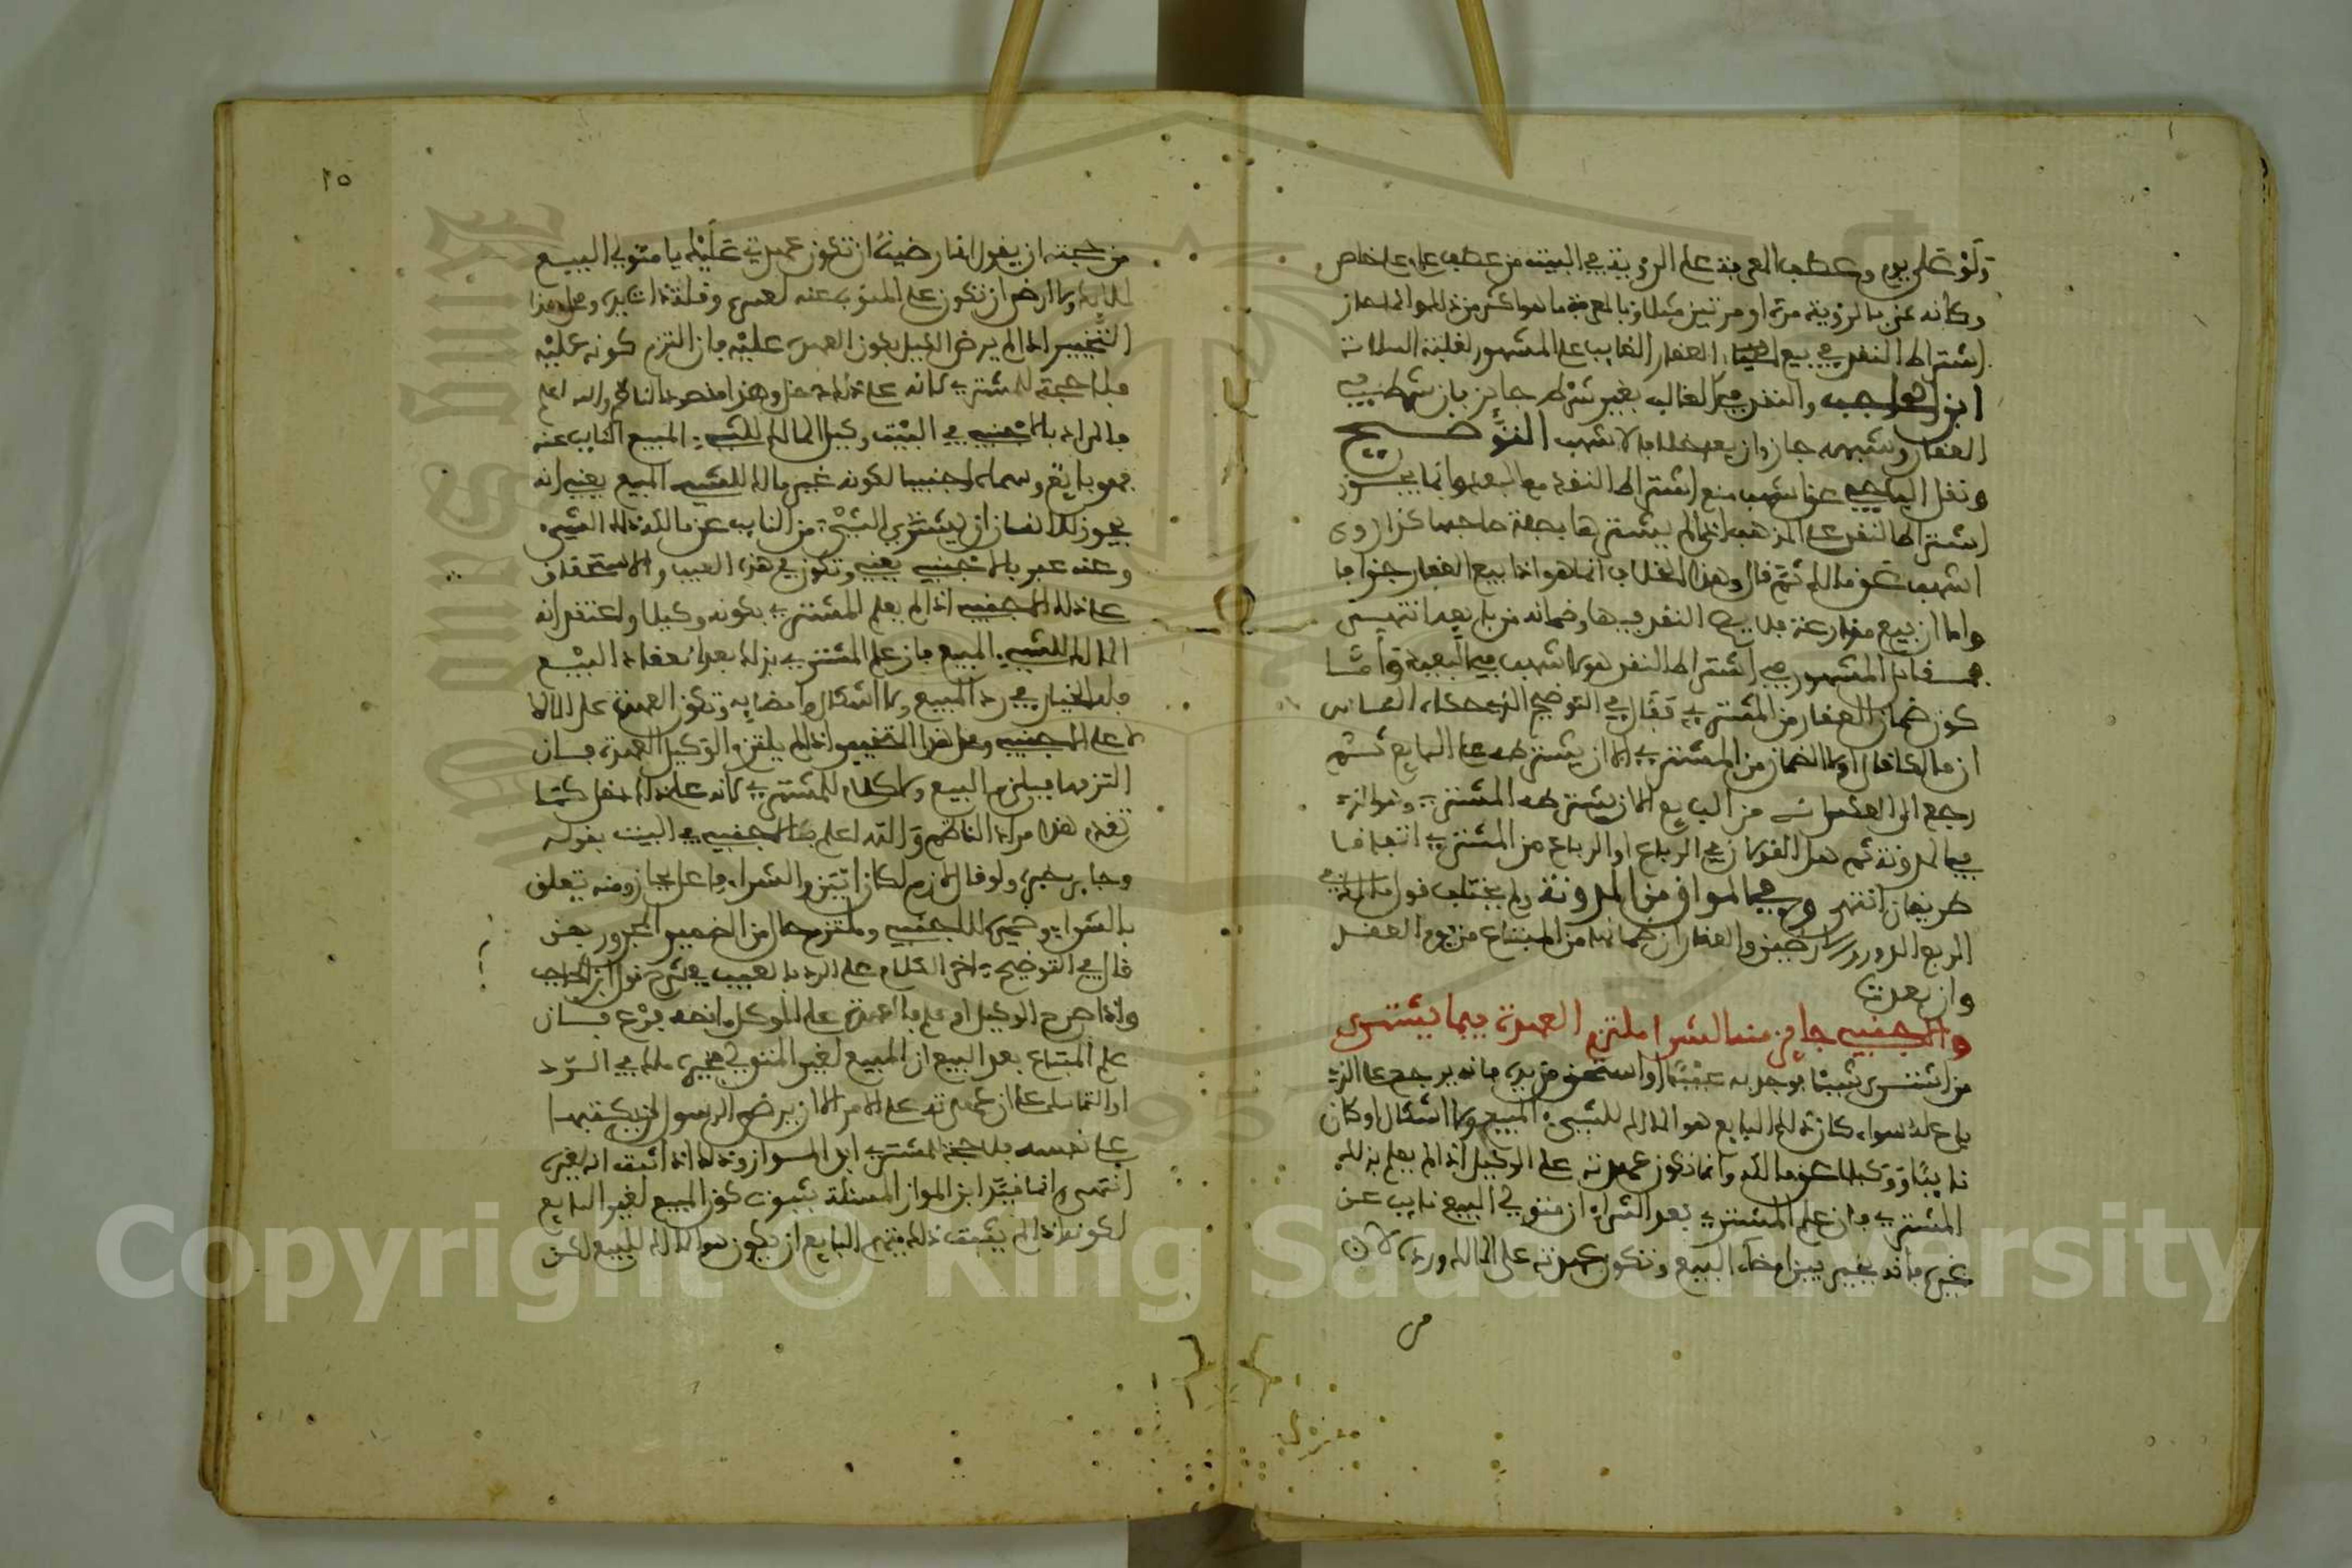 ولو على يوم وعطف المعرفة على الرؤية في البيت من عطف عام على خاص
وكأنه عنى بالرؤية مرة أو مرتين مثلا وبالمعرفة ما هو أكثر من ذلك وإنما جاز
اشتراط النقد في بيع العقار الغائب على المشهور لغلبة السلامة
ابن الحاجب والنقد في الغائب بغير شرط جائز فإن شرط في
العقار وشبهه جاز وإن بعد خلافا لأشهب التوضيح
ونقل الباجي عن أشهب منع اشتراط النقد مع البعد وإنما يجوز
اشتراط النقد على المذهب إذا لم يشترها بصفة صاحبها كذا روى
أشهب عن مالك ثم قال وهذا الخلاف إنما هو إذا بيع العقار جزافا
وأما إن بيع مذارعة فلا يصح النقد فيها وضمانه من بايعه انتهى
فمقابل المشهور في اشتراط النقد هو لأشهب فيما لبعد وأما
كون ضمان العقار من المشتري فقال في التوضيح الذي حكاه
أن مالكا قال أولا الضمان من المشتري إلا أن يشترطه على البايع ثم
رجع إلى العكس من البايع إلا أن يشترطه المشتري وهو الذي
في المدونة ثم هل القولان في الرباع أو الرباع من المشتري اتفاقا
طريقان انتهى وفي المواق من المدونة ولم يختلف قول مالك في
الربع الدور والأرضين والعقار أن ضمانها من المبتاع من يوم العقد
وإن بعدت
والأجنبي جائز منه الشرا ملتزم العهدة فيما يشترى
من اشترى شيئا فوجد به عيبا أو استحق من يده فإنه يرجع على الذي
باع له سواء كان ذلك البايع هو المالك للشيء المبيع ولا إشكال أو كان
نايبا ووكيلا عن مالكه وإنما تكون عهدته على الوكيل إذا لم يعلم بذلك
المشتري فإن علم المشتري بعد الشراء أن متولي البيع نايب عن
غيره فإنه يخير بين إمضاء البيع وتكون عهدته على المالك ورده لأن
من
١٥
من حجته أن يقول إنما رضيت أن تكون عهدتي عليك يا متولي البيع
ولا أرضى أن تكون على المنوب عنه لعسره وقلة ذات يده ومحل هذا
التخيير إذا لم يرض الوكيل بكون العهدة عليه فإن التزم كونه عليه
فلا حجة للمشتري لأنه على ذلك دخل وهذا مقصود الناظم والله أعلم
فالمراد بالأجنبي في البيت وكيل المالك للشيء المبيع النايب عنه
فهو بايع وسماه أجنبيا لكونه غير مالك للشيء المبيع يعني أنه
يجوز للإنسان أن يشتري الشيء من النايب عن مالك ذلك الشيء
وعنه عبر بالأجنبي يعني وتكون عهدة العيب والاستحقاق
على ذلك الأجنبي إذا لم يعلم المشتري بكونه وكيلا واعتقد أنه
المالك للشيء المبيع فإن علم المشتري بذلك بعد انعقاد البيع
فله الخيار في رد المبيع ولا إشكال وإمضائه وتكون العهدة على المالك
لا على الأجنبي ومحل هذا التخيير إذا لم يلتزم الوكيل العهدة فإن
التزمها فيلزم البيع ولا كلام للمشتري لأنه على ذلك دخل كما
تقدم هذا مراد الناظم والله أعلم بالأجنبي في البيت بقوله
وجائز خبره ولو قال لازم لكان أبين والشراء فاعل بجائز ومنه تعلق
بالشراء وضميره للأجنبي وملتزم حال من الضمير المجرور بمن
قال في التوضيح آخر الكلام على الرد بالعيب في شرح قول ابن الحاجب
وإذا صرح الوكيل أو علم فالعهدة على الموكل ما نصه فرع فإن
علم المبتاع بعد البيع أن المبيع لغير المتولي خير في الرد
أو التماسك على أن عهدته على الآمر إلا أن يرضى الرسول أن يكتبها
على نفسه فلا حجة للمشتري ابن المواز وذلك إذا أثبت أنه لغيره
انتهى وإنما قيد ابن المواز المسئلة بثبوت كون المبيع لغير البايع
لكونه إذا لم يثبت ذلك يتهم البايع أن يكون هو المالك للمبيع لكن
Copyright © King Saud University